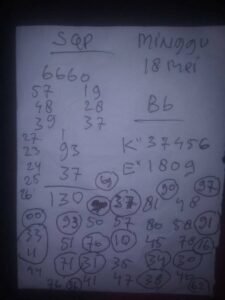 SGP MINGGU
18 MEI
6660
57 19
48 28 Bb
39 37
27 K" 37456
23 93
24 37 E" 1809
25 69 90 97
26 130 37 81 48
00 93 50 57 80 58 91
33 51 70 10 45 78 16
11 71 31 35 34 30
94 76 91 41 47 38 62